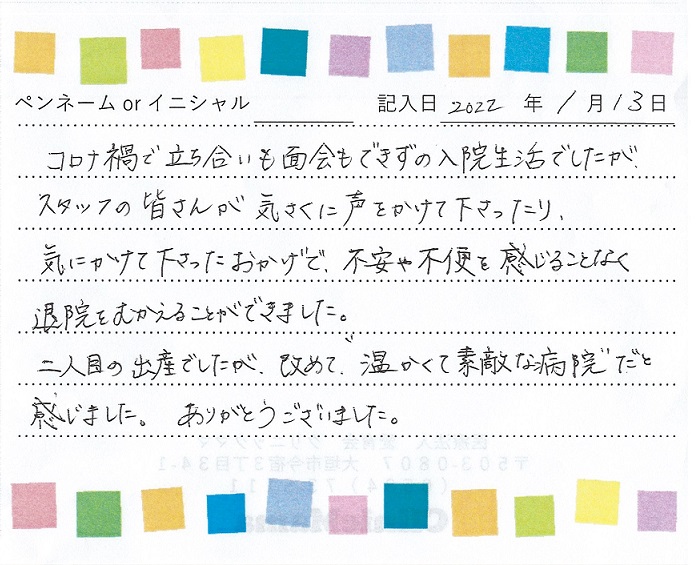 ペンネーム or イニシャル 記入日 2022 年 1 月 13 日
コロナ禍で立ち合いも面会もできずの入院生活でしたが、
スタッフの皆さんが気さくに声をかけて下さったり、
気にかけて下さったおかげで、不安や不便を感じることなく
退院をむかえることができました。
二人目の出産でしたが、改めて、"温かくて素敵な病院"だと
感じました。 ありがとうございました。
〒503-0807 大垣市今宿3丁目34-1